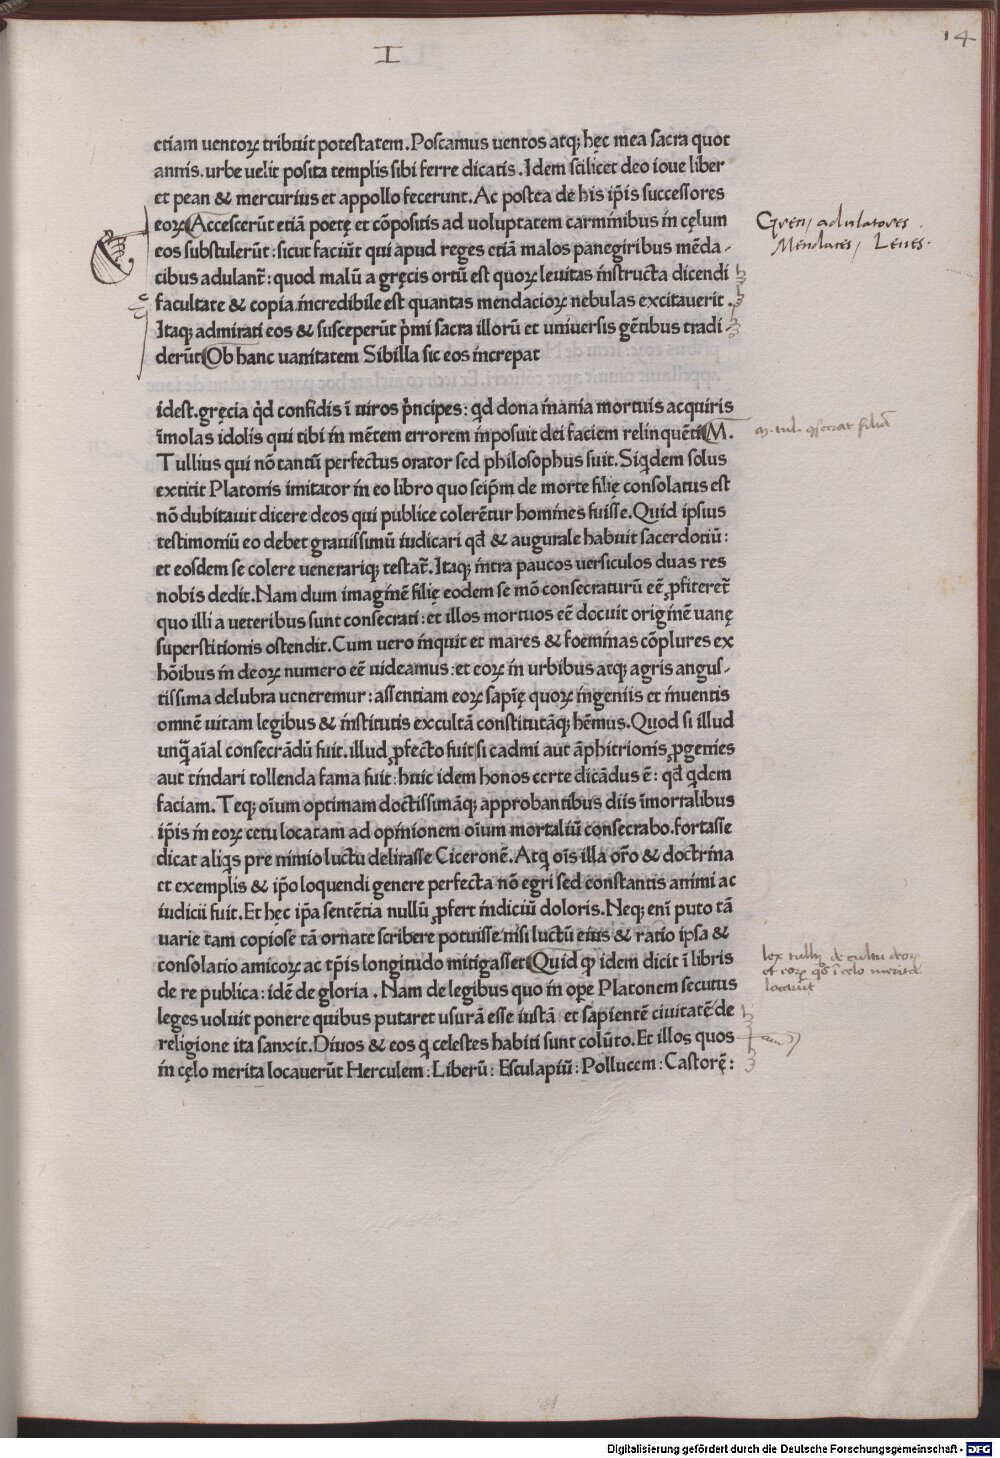 I
14
etiam uentoꝝ tribuit potestatem. Poscamus uentos atq; hęc mea sacra quot
annis. urbe uelit posita templis sibi ferre dicatis. Idem scilicet deo ioue liber
et pean & mercurius et appollo fecerunt. Ac postea de his ip̄is successores
eoꝝ Accescerūt etiā poetę et cōpositis ad uoluptatem carminibus in cęlum
eos substulerūt: sicut faciūt qui apud reges etiā malos panegiribus mēda-
cibus adulant̄: quod malū a gręcis ortū est quoꝝ leuitas instructa dicendi
facultate & copia incredibile est quantas mendacioꝝ nebulas excitauerit.
Itaq; admirati eos & susceperūt p̄mi sacra illorū et uniuersis gētibus tradi-
derūt Ob hanc uanitatem Sibilla sic eos increpat
Greci, adulatores.
Mendaces, Leues.
idest. gręcia q̇d confidis ī uiros p̄ncipes: q̇d dona inania mortuis acquiris
īmolas idolis qui tibi in mētem errorem inposuit dei faciem relinquēti M.
Tullius qui nō tantū perfectus orator sed philosophus fuit. Siq̇dem solus
extitit Platonis imitator in eo libro quo seip̄m de morte filię consolatus est
nō dubitauit dicere deos qui publice colerētur homines fuisse. Quid ipsius
testimoniū eo debet grauissimū iudicari qđ & augurale habuit sacerdotiū:
et eosdem se colere uenerariq; testat̄. Itaq; intra paucos uersiculos duas res
nobis dedit. Nam dum imaginē filię eodem se mō consecraturū eē ꝓfiteret̄
quo illi a ueteribus sunt consecrati: et illos mortuos eē docuit originē uanę
superstitionis ostendit. Cum uero inquit et mares & foeminas cōplures ex
hōibus in deoꝝ numero eē uideamus: et eoꝝ in urbibus atq; agris angus-
tissima delubra ueneremur: assentiam eoꝝ sapīę quoꝝ ingeniis et inuentis
omnē uitam legibus & institutis excultā constitutāq; hēmus. Quod si illud
unq̄ aīal consecrādū fuit. illud ꝓfecto fuit si cadmi aut āphitrionis ꝓgenies
aut tindari tollenda fama fuit: huic idem honos certe dicādus ē: qđ q̇dem
faciam. Teq; oīum optimam doctissimāq; approbantibus diis īmortalibus
ip̄is in eoꝝ cetu locatam ad opinionem oīum mortaliū consecrabo. fortasse
dicat aliq̇s pre nimio luctu delirasse Ciceronē. Atq̇ oīs illa or̄o & doctrina
et exemplis & ip̄o loquendi genere perfecta nō egri sed constantis animi ac
iudicii fuit. Et hęc ip̄a sentētia nullū ꝓfert indiciū doloris. Neq; enī puto tā
uarie tam copiose tā ornate scribere potuisse nisi luctū eius & ratio ipsa &
consolatio amicoꝝ ac tp̄is longitudo mitigasset Quid ꝙ idem dicit ī libris
de re publica: idē de gloria. Nam de legibus quo in oꝑe Platonem secutus
leges uoluit ponere quibus putaret usurā esse iustā et sapientē ciuitatē de
religione ita sanxit. Diuos & eos q̇ celestes habiti sunt colūto. Et illos quos
in cęlo merita locauerūt Herculem: Liberū: Esculapiū: Pollucem: Castorē:
M. tul. ꝯsecrat filiā
lex tullij de cultu deoꝝ
et eoꝝ q̊s ī celo merita
locaūt
Digitalisierung gefördert durch die Deutsche Forschungsgemeinschaft - DFG